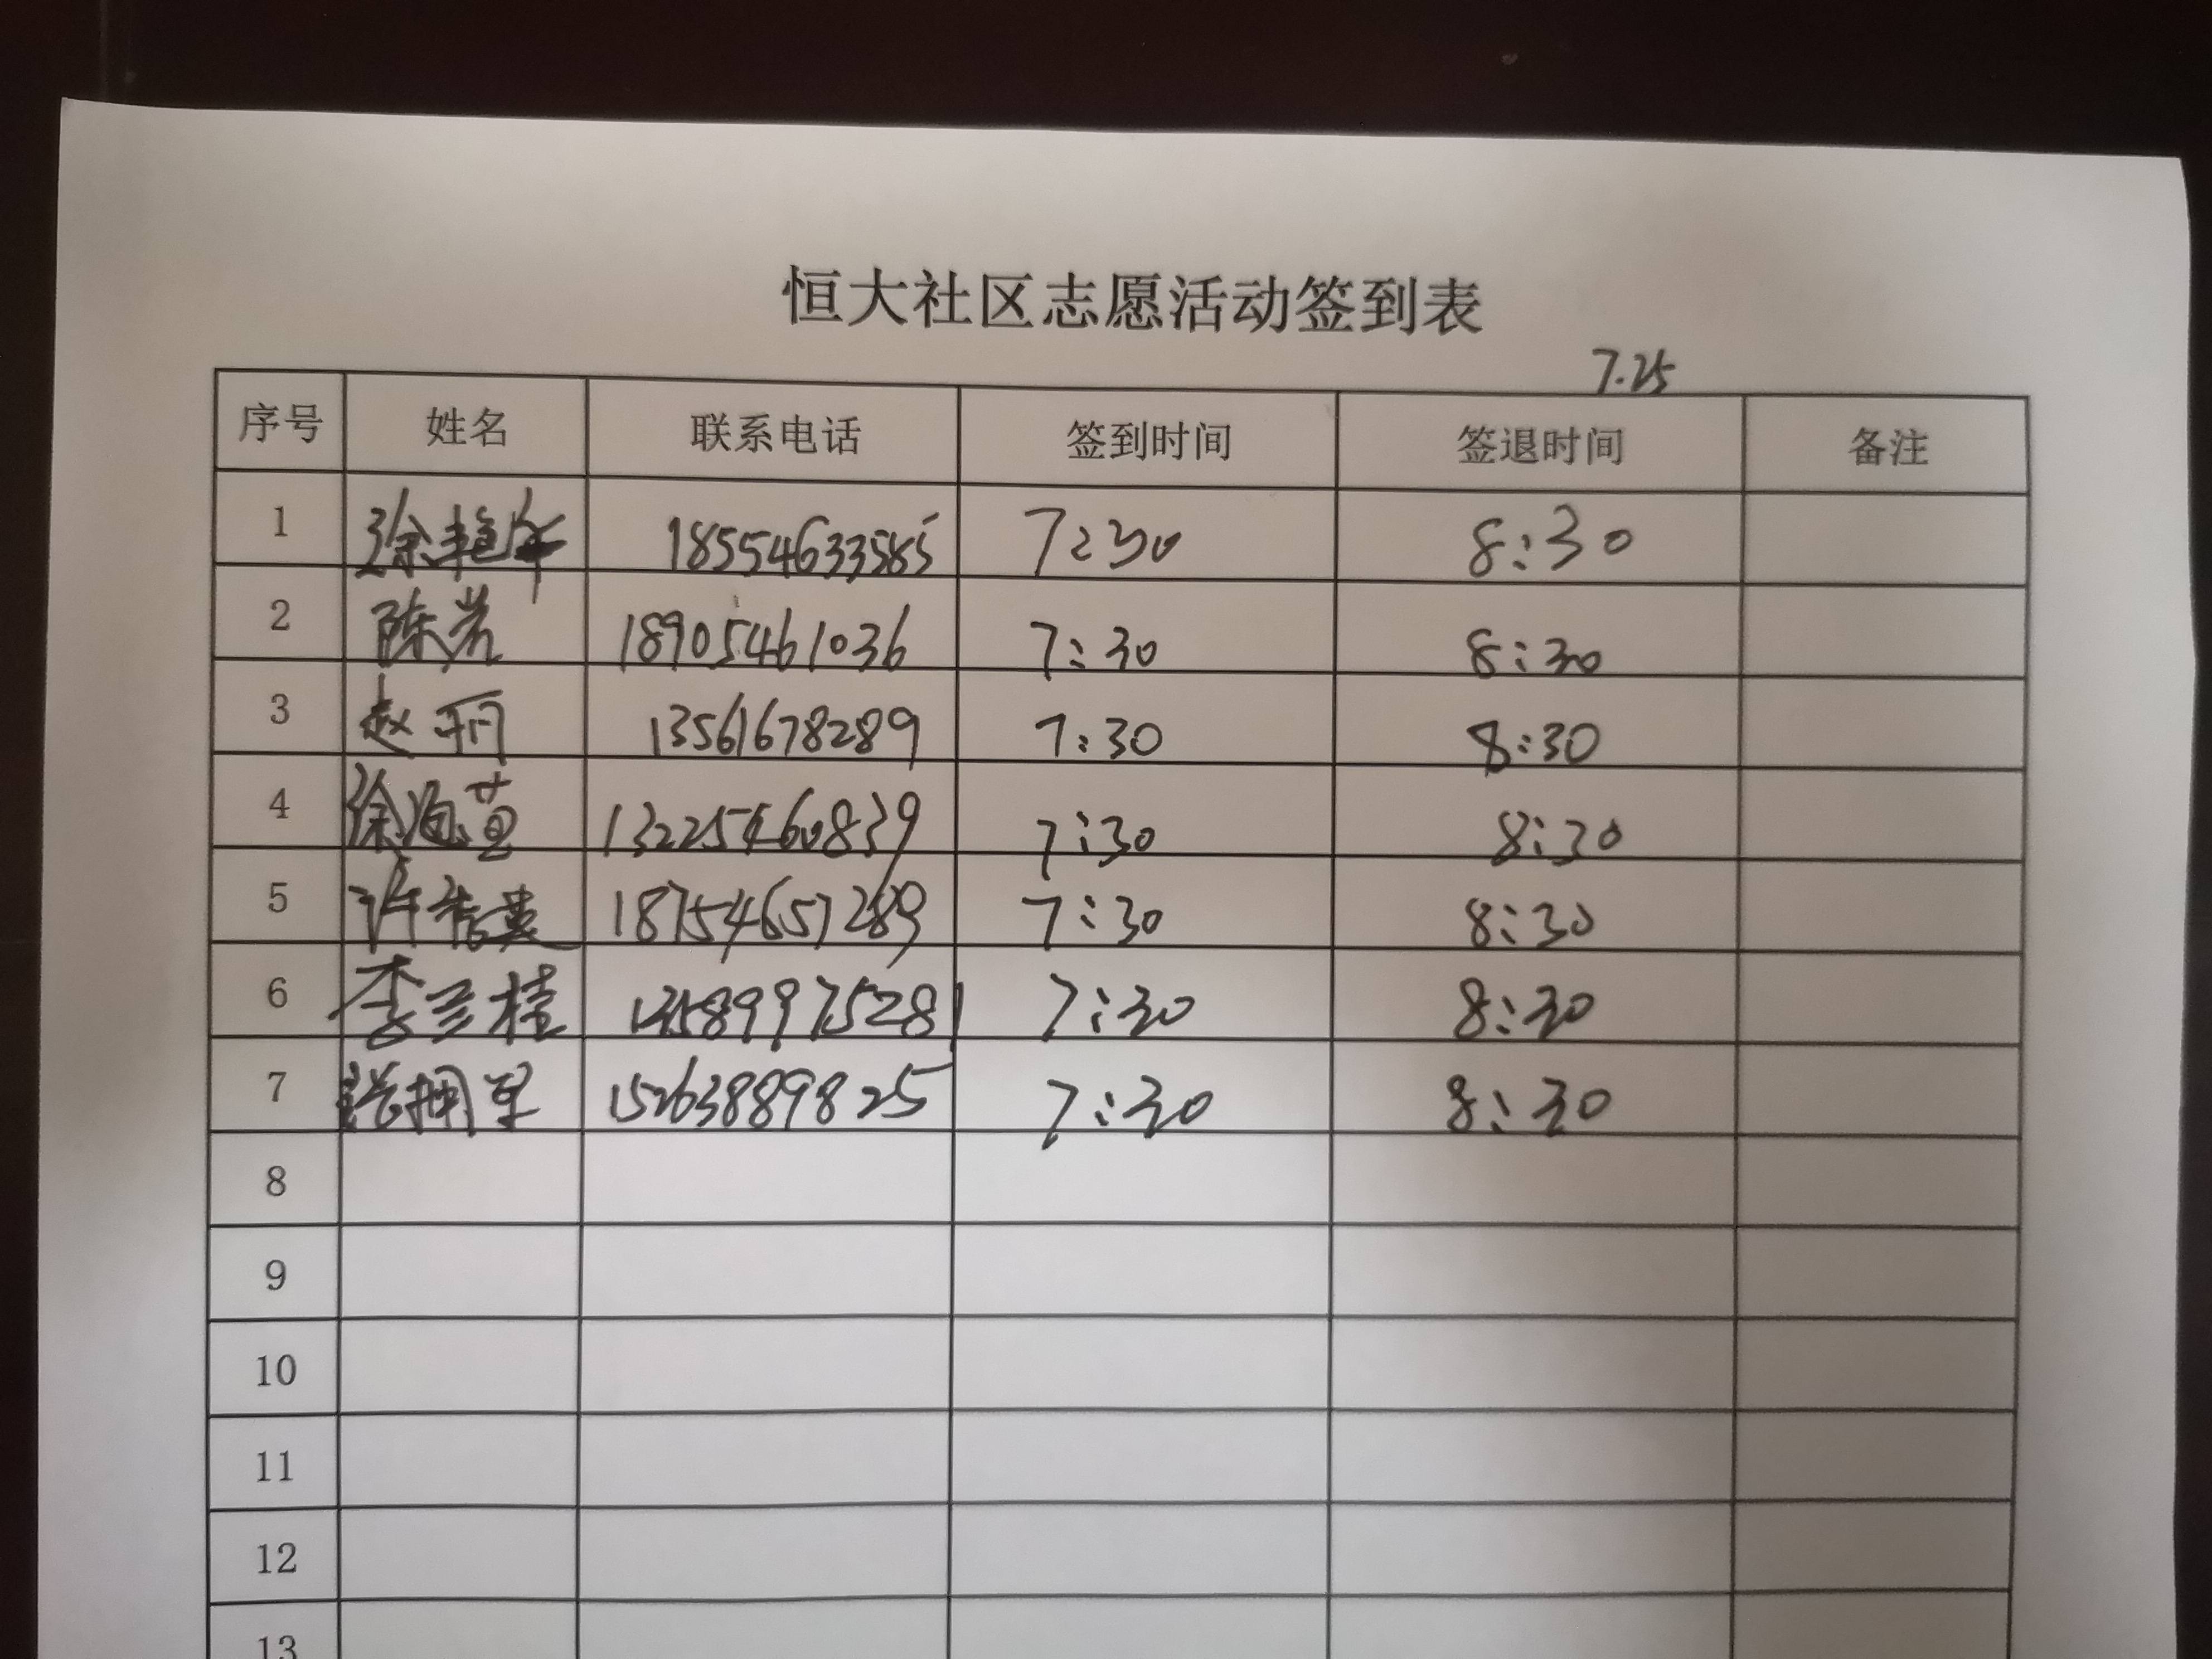 恒大社区志愿活动签到表
7.25
序号 姓名 联系电话 签到时间 签退时间 备注
1 徐艳华 18554633585 7:30 8:30
2 陈芳 18905461036 7:30 8:30
3 赵丽 13561678289 7:30 8:30
4 徐海苗 13225460839 7:30 8:30
5 许 18754657289 7:30 8:30
6 李兰桂 13589975281 7:30 8:30
7 15263889825 7:30 8:30
8
9
10
11
12
13